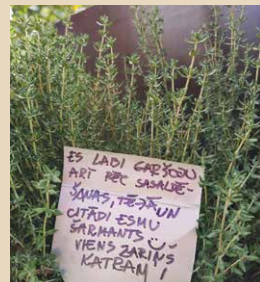 ES LABI GARŠOJU
ARĪ PĒC SASALDĒ-
ŠANAS, TĒJĀ UN
CITĀDI ESMU
ŠARMANTS
VIENS ZARIŅŠ
KATRAM!